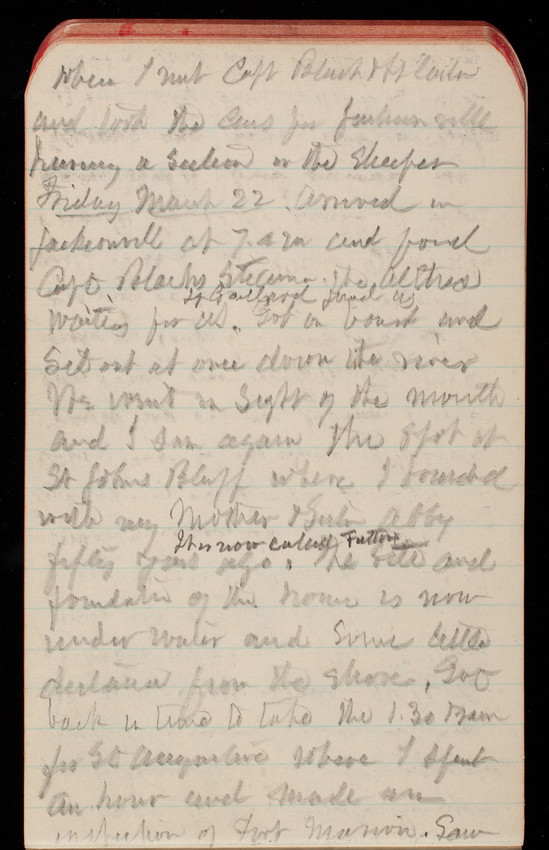 when I met Capt Black & Lt
and took the Cars for Jacksonville
having a Section in the Sleeper
Friday March 22. Arrived in
Jacksonville at 7 am and found
Capt Blacks Steamer the
Lt Gaillard joined us
waiting for us. Got on board and
Set out at once down the river
We went in Sight of the mouth
and I saw again the Spot at
St Johns Bluff where I boarded
with my Mother & Sister Abby
It is now called Fulton
fifty years ago. The site and
foundation of the house is now
under water and Some little
distance from the shore. Got
back in time to take the 1.30 train
for St Augustine where I Spent
an hour and made an
inspection of Fort Marion. Saw